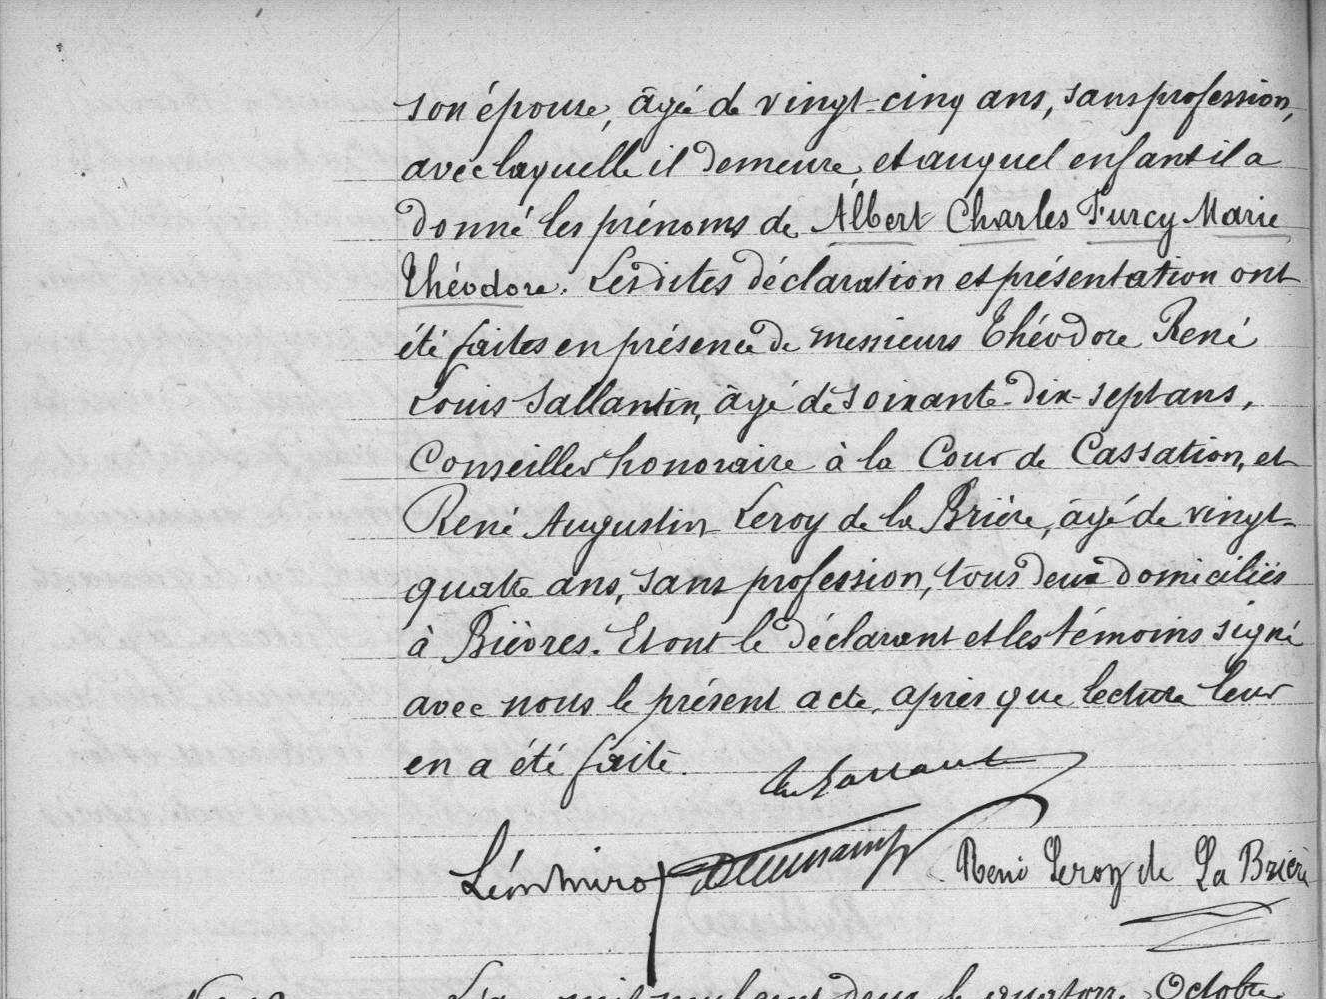 son épouse, âgée de vingt-cinq ans, sans profession,
avec laquelle il demeure, et auquel enfant il a
donné les prénoms de Albert Charles Furcy Marie
Théodore. Lesdites déclaration et présentation ont
été faites en présence de messieurs Théodore René
Louis Sallantin, âgé de soixante-dix-sept ans,
Conseiller honoraire à la Cour de Cassation, et
René Augustin Leroy de la Brière, âgé de vingt-
quatre ans, sans profession, tous deux domiciliés
à Bièvres. Et ont le déclarant et les témoins signé
avec nous le présent acte, après que lecture leur
en a été faite.
René Leroy de La Brière
Octobre